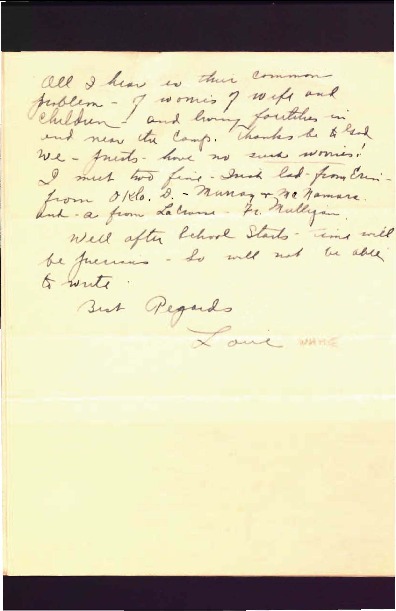 All I hear is their common
problem - of worries of wife and
children - and living facilities in
and near the Camp. Thanks be to God
we - priests - have no such worries!
I met two fine - Irish lad - from Erin -
from Okla. D. - Murray + McNamara.
and - a from LaCrosse - Fr. Mulligan.
Well after School Starts - time will
be precious - So will not be able
to write.
Best Regards
Louie